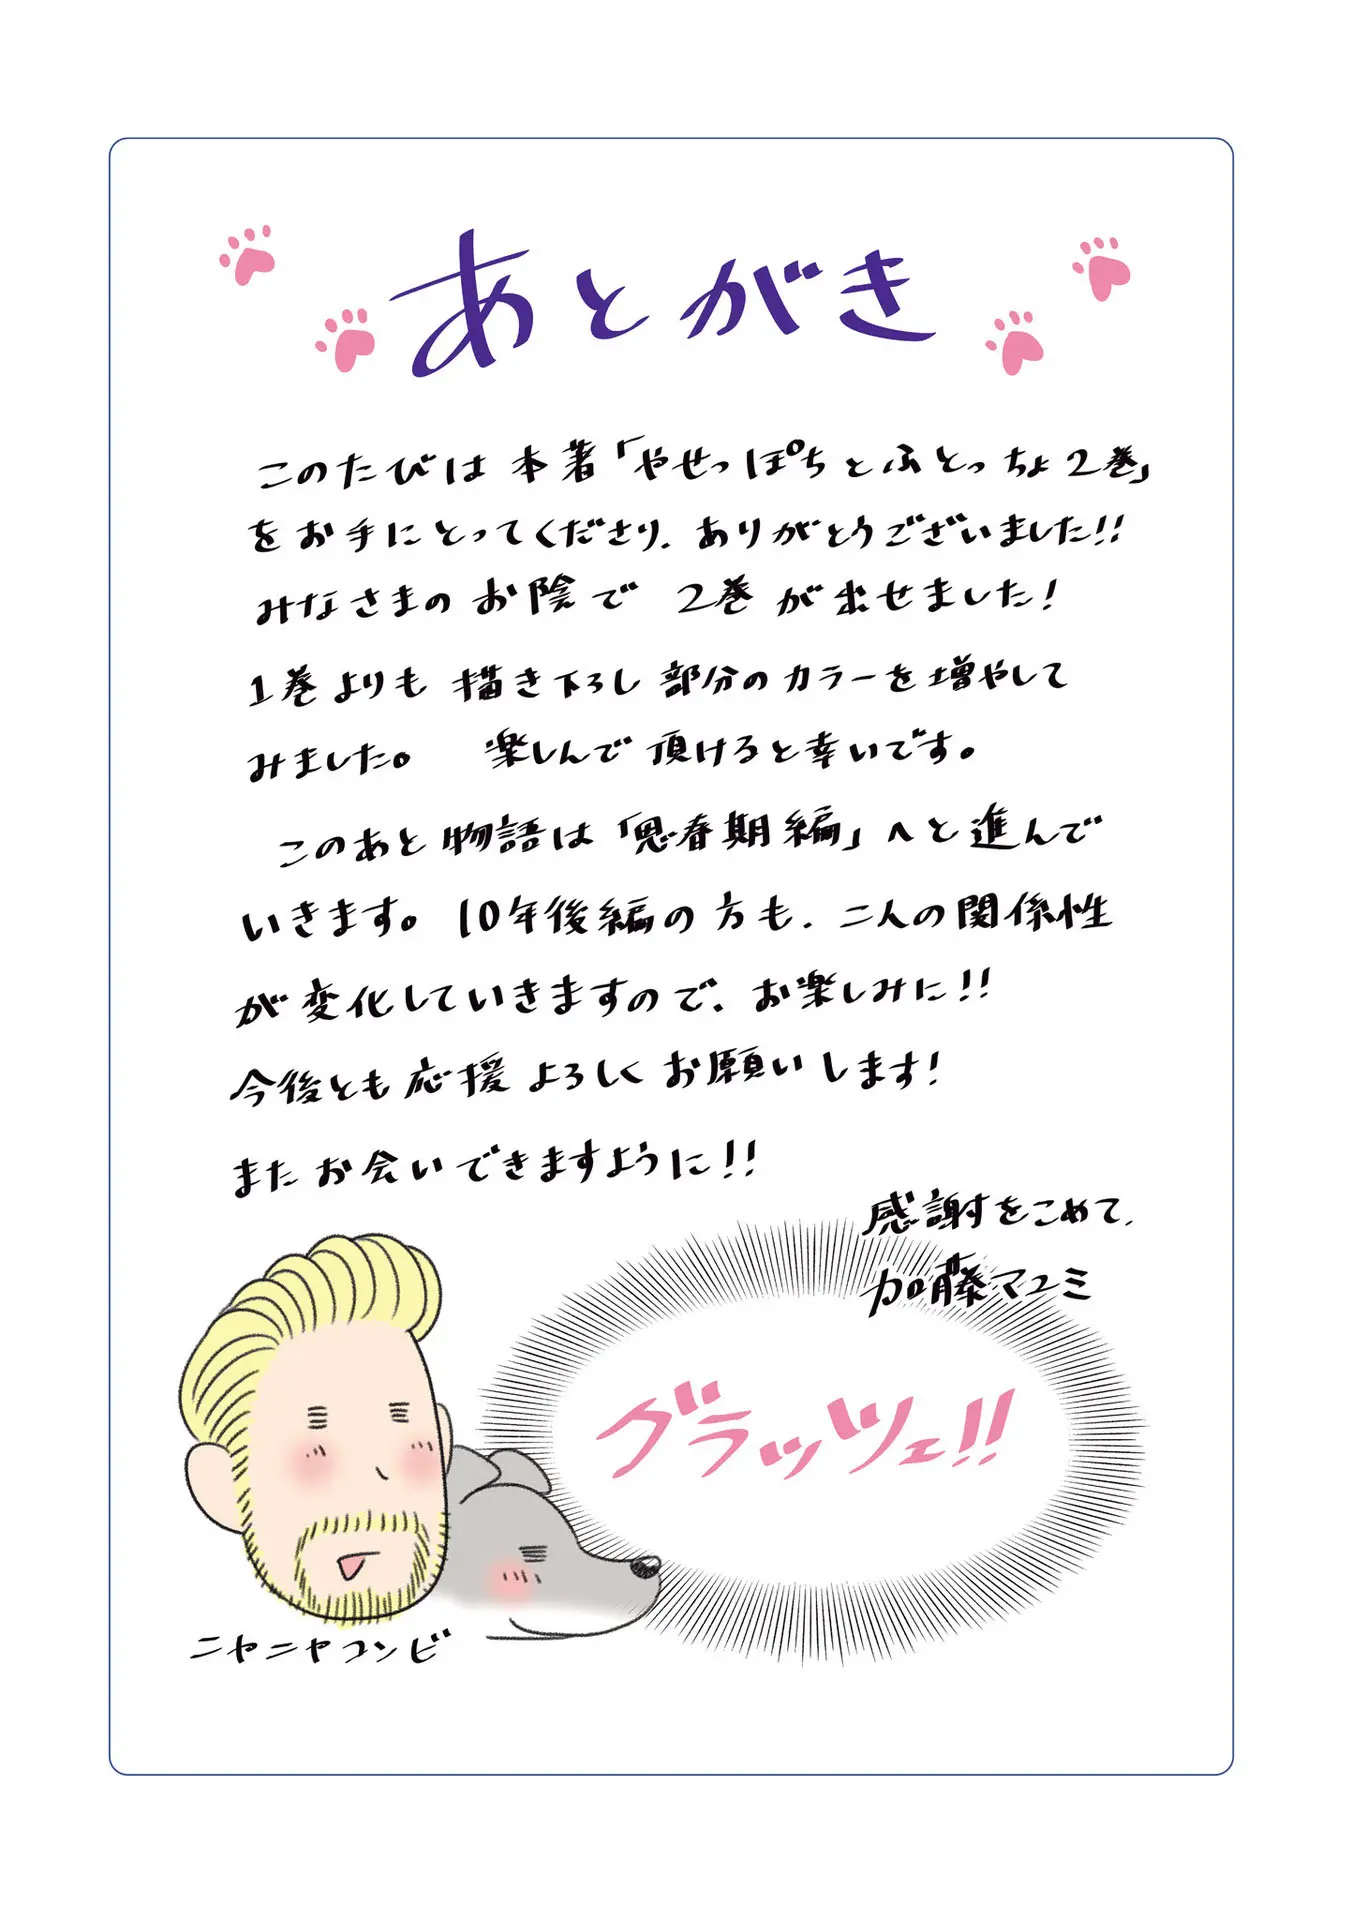 あとがき
このたびは本著「やせっぽちとふとっちょ2巻」
をお手にとってくださり、ありがとうございました!!
みなさまのお陰で 2巻が出せました!
1巻よりも描き下ろし部分のカラーを増やして
みました。 楽しんで頂けると幸いです。
このあと物語は「思春期編」へと進んで
いきます。10年後編の方も、二人の関係性
が変化していきますので、お楽しみに!!
今後とも応援よろしくお願いします!
またお会いできますように!!
感謝をこめて、
加藤マユミ
グラッツェ!!
ニヤニヤコンビ